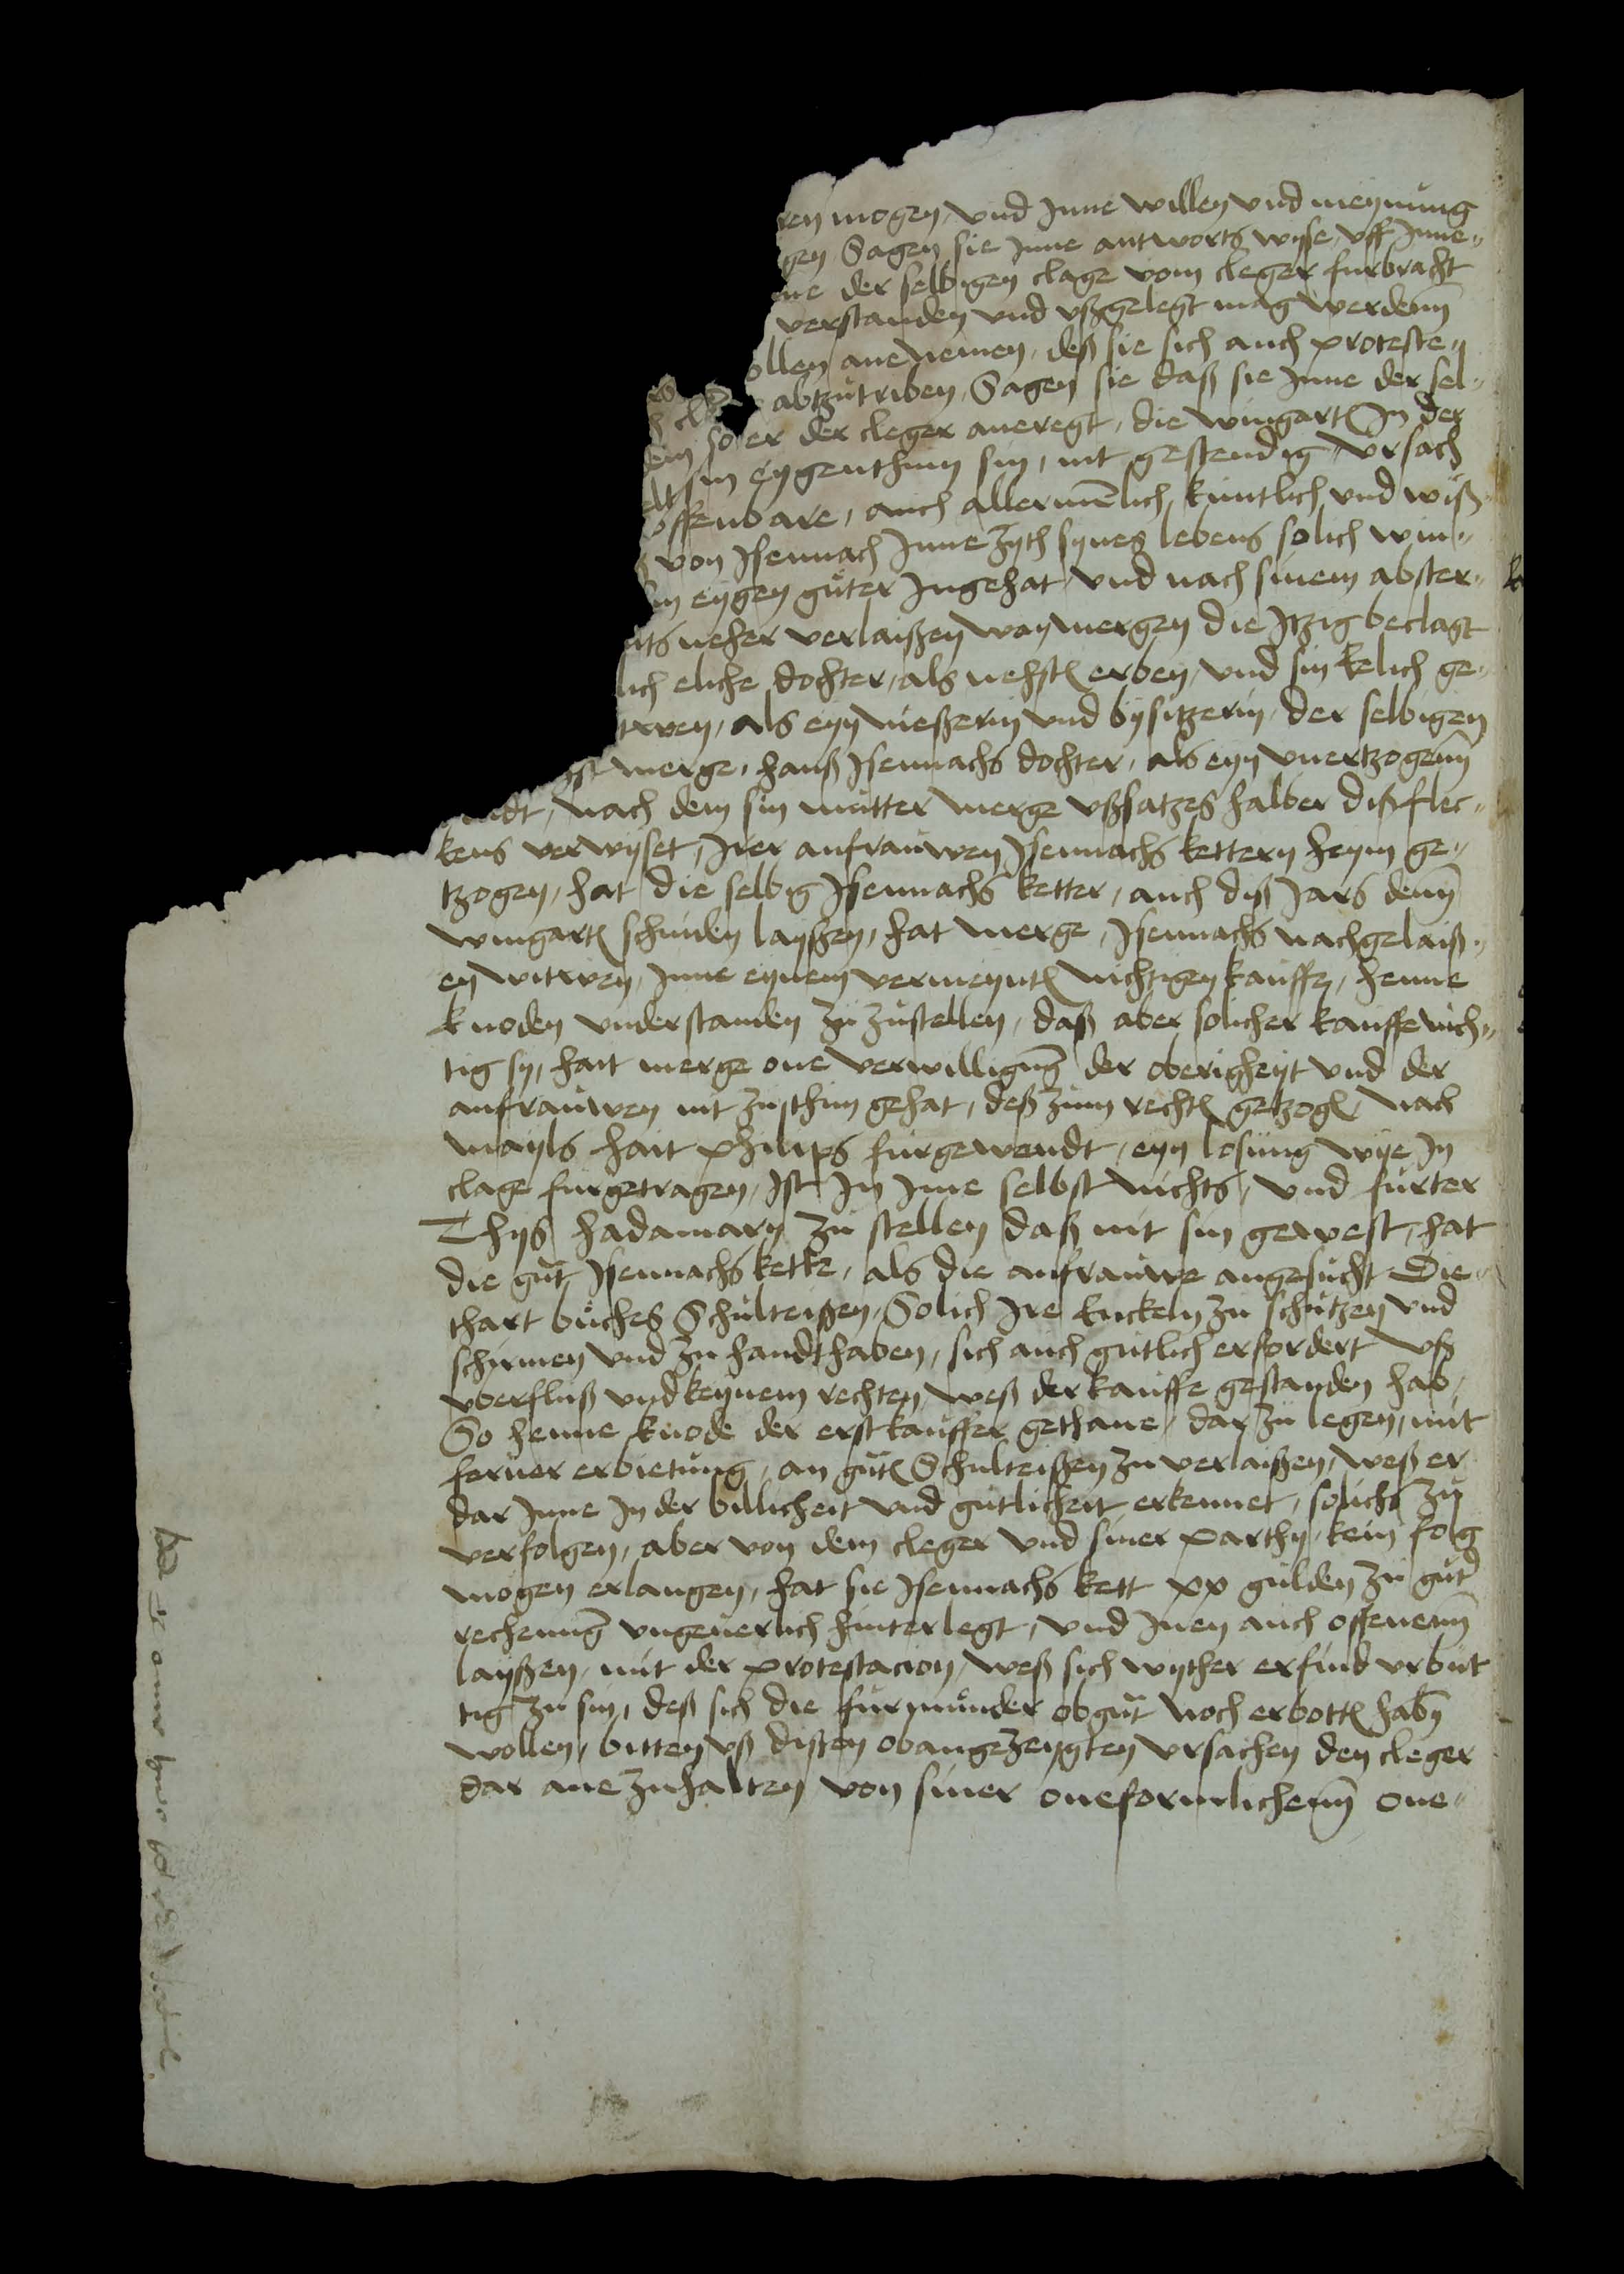 ren mogen, vnd Jnne willen vnd meynung
gen Sagen sie Jnne antworts wyse, vff Jnne-
ne der selbigen clage vom cleger furbracht
verstanden vnd vßgelegt mag werdenn
ollen anenemen, deß sie sich auch proteste-
abtzutriben, Sagen sie daß sie Jnne der sel-
dem so er der cleger aneregt, die wingart Jn der
elt sin eygenthum sin, nit gestendig Vrsach
offenbare, auch allermelich kuntlich vnd wiß
von Jsennach Jnne zyth synes lebens solich win-
in eygen guter Jngehat vnd nach sinem abster-
nts neher verlaißen von mergen die Jtzig beclagt
lich eliche dochter, als nehst erben, vnd sin kelich ge-
twen, als eyn nießerin vnd bysitzerin, der selbigen
ist merge, hanß Jsennachs dochter, als eyn vnertzogenn
ndt, nach dem sin mutter merge vßsatzes halber diß flec-
kens verwyset, Jrer anfrauwen Jsennachs kettern heym ge-
tzogen, hat die selbig Jsennachs ketter, auch diß Jars denn
wingart schniden layßen, hat merge, Jsennachs nachgelaiß-
en witwen, Jnne eynem vermeynt nichtigen kauff, henne
knoden vnderstanden zu zustellen, daß aber solicher kauffe nich-
tig sy, hait merge one verwilligung der oberigheyt vnd der
anfrauwen nit zu thun gehat, deß zum recht getzog nach
mayls hait philips furgewendt, eyn losung wye Jn
clage furgetragen, Jst Jn Jme selbst nichts, vnd furter
Thyß hadamarn zu stellen daß nit sin gewest, hat
die gut Jsennachs kette, als die anfrauwe angesucht Die-
thart buches Schulteißen, Solich Jre Enckeln zu schutzen vnd
schirmen vnd zu handthaben, sich auch gutlich erfordert vß
vberfluß vnd keynem rechten, weß der kauffe gestanden hab,
So henne knode der erst kauffer gethane, dar zu legen, mit
ferner erbietung, an gut Schulteißen zu verlaißen, weß er
dar Jnne Jn der billicheit vnd gutlicheit erkennet, solichs zu
verfolgen, aber von dem cleger vnd siner parthy, kein folg
mogen erlangen, hat sie Jsennachs kett xx gulden zu gut
rechenung vngeuerlich hinterlegt, vnd Jnen auch offenenn
layßen, mit der protestacion, weß sich wyther erfind vrbut
tig zu sin, deß sich die furmunder obgut noch erbott habn
wollen, bitten vß dißen obangezeygten vrsachen den cleger
dar ane zuhalten von siner oneformlichenn one-